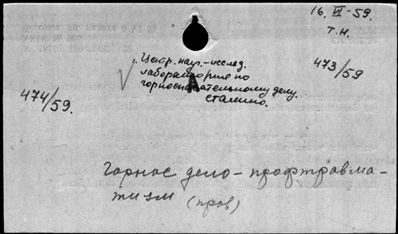 16. VI - 59.
Т.Н.
Центр. науч.-исслед.
лаборатория по
горноспасательному делу.
Сталино.
473/59
474/59.
Горное дело - профтравма-
тизм (пров)